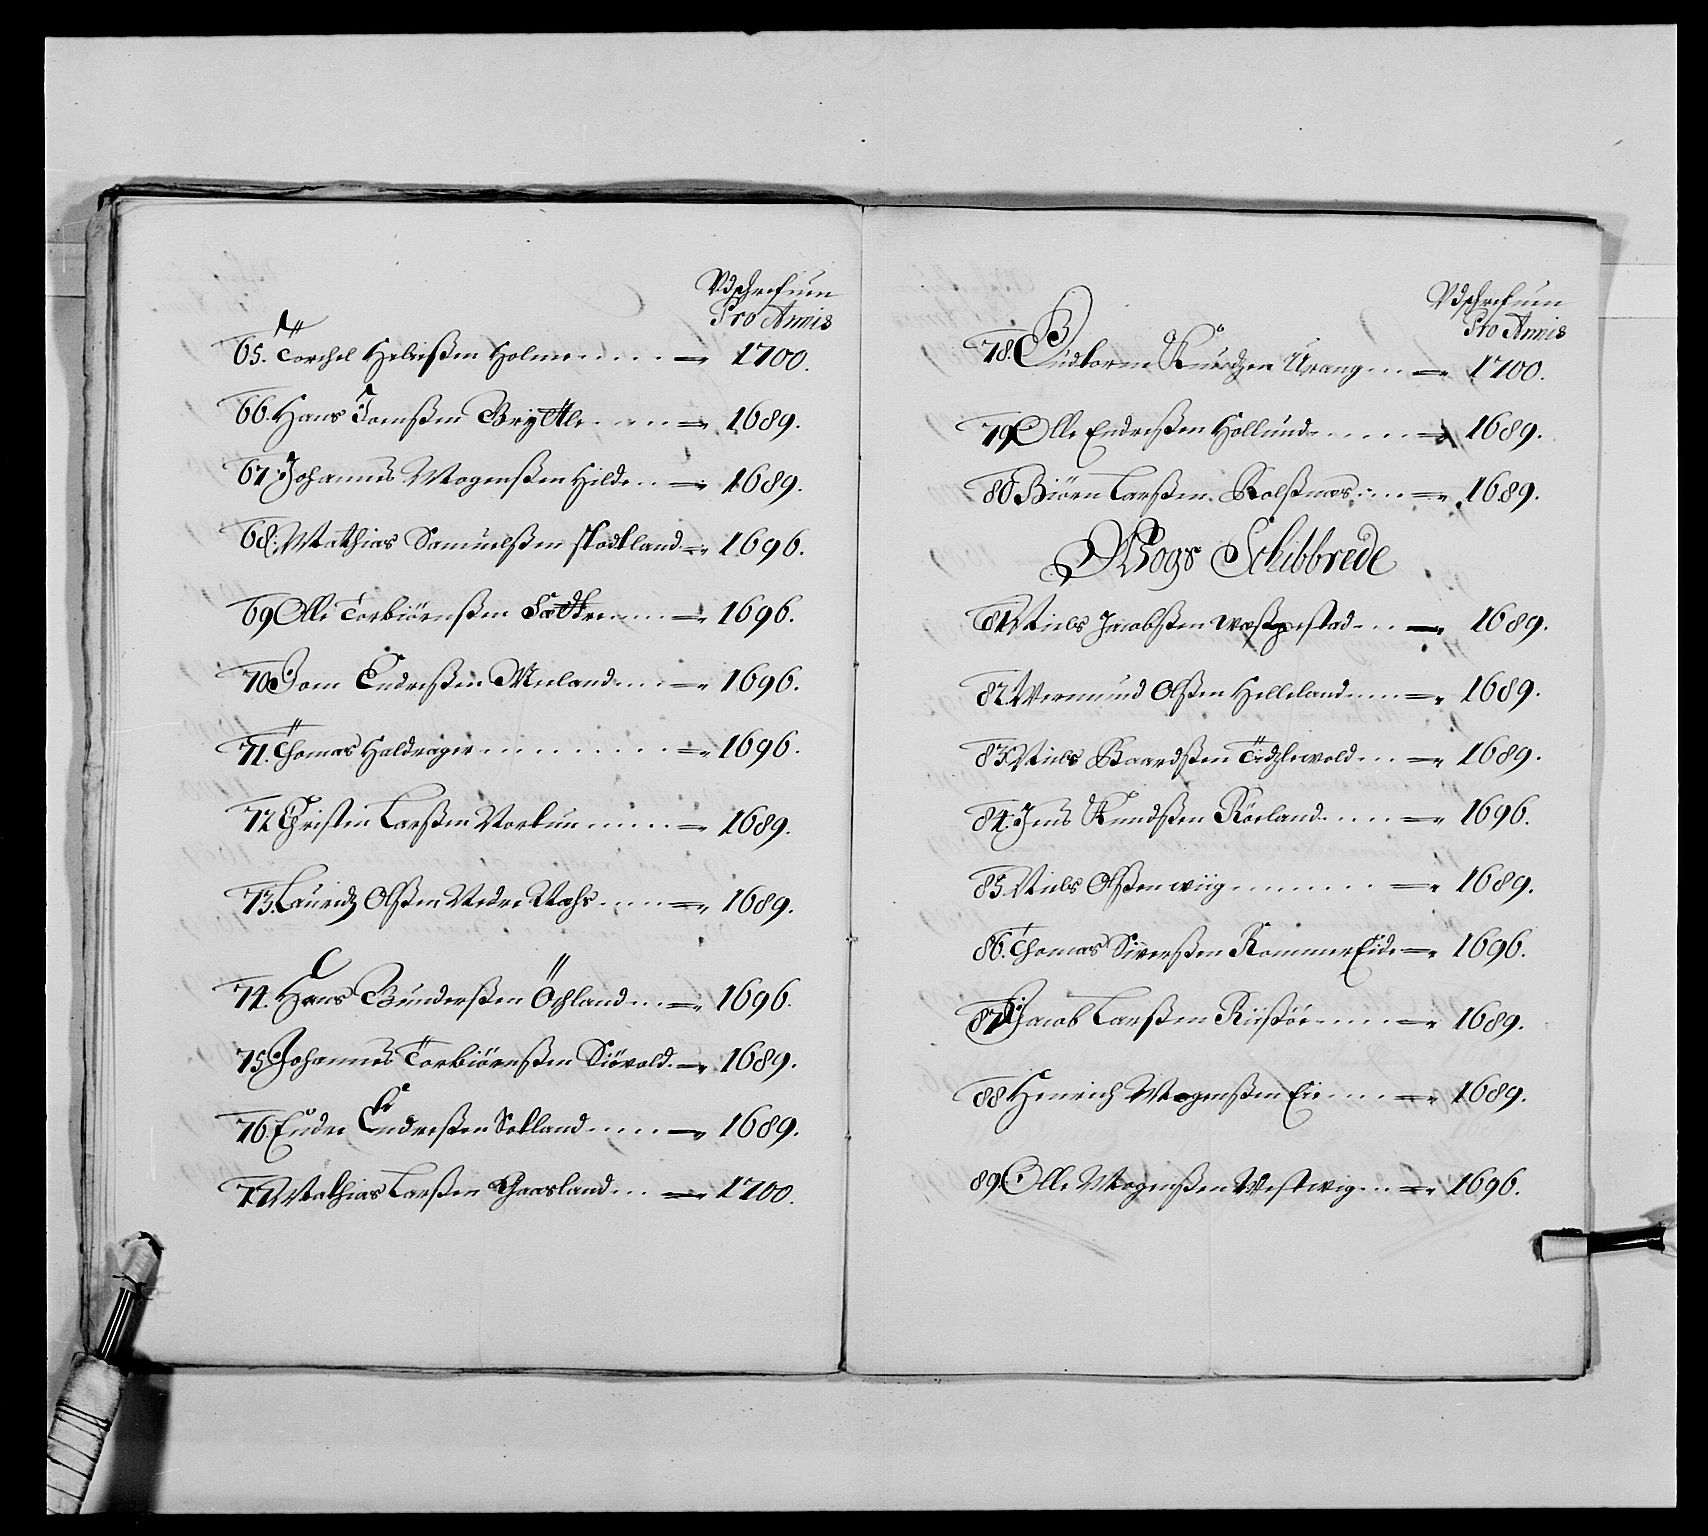 Vdschrefuen
Pro Annis
65. Torchel Helrißen Holme = 1700.
66. Hans Jomßen Bryttle = 1689.
67. Johannes Mogenßen Hilde = 1689.
68. Mathias Samuelßen stodtland = 1696.
69 Olle Torbiörnßen Sædtre = 1696.
70 Jom Endreßen Meeland = 1696.
71. Thomas Haldrager = 1696.
72 Christen Larßen = 1689.
73. Lauridz Olßen Nedre Vahs = 1689.
74. Hans Gunderßen Öchland = 1696.
75 Johannes Torbiörnßen Siövold = 1689.
76. Endre Endreßen Sokland = 1689.
77 Mathias Larßen Gaarsland = 1700.
Vdschrefuen
Pro Annis
78. Gudtorm Knudzen Urang = 1700.
79 Olle Endreßen Hollund = 1689.
80 Biörn Larßen Rolßnæs = 1689.
Wogs Schibbrede
81 Niels Jacobßen = 1689.
82. Vermund Olßen Helleland = 1689.
83. Niels Baardßen Tidzlevold = 1689.
84. Jens Knudßen Röeland = 1696.
85. Niels Olßen wiig = 1689.
86. Thomas Siverßen Rommer Eide = 1696.
87 Jacob Larßen Riisöe = 1689.
88 Henrich Mogenßen Eie = 1689.
89 Olle Mogenßen Westwig = 1696.